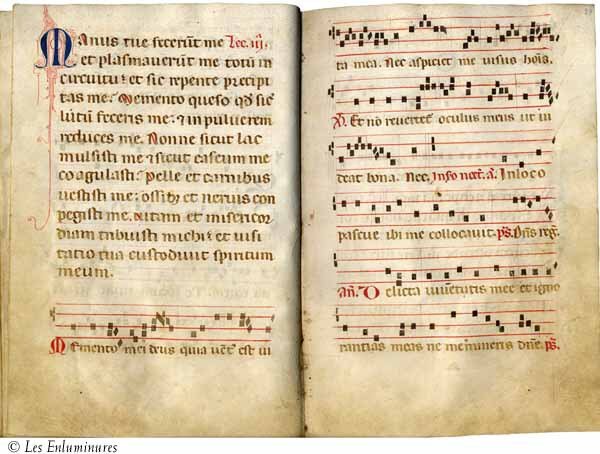 Manus tue fecerūt me Lec. iij.
et plasmaverūt me totū in
circuitu: et sic repente precipi
tas me. Memento queso qd sic
lutū feceris me: et in pulverem
reduces me. Nonne sicut lac
mulsisti me et sicut caseum me
coagulasti: pelle et carnibus
vestisti me: ossibꝫ et nervis con
pegisti me. vitam et misericor
diam tribuisti michi: et visi
tatio tua custodivit spiritum
meum.
Memento mei deus quia vēt est vi
ta mea. Nec aspiciet me visus hoīs.
℣. Et nō revertet oculus meus ut vi
deat bona. Nec. In loco
pascue ibi me collocavit. ps. Dn̄s reg.
añ. Delicta iuvētutis mee et igno
rantias meas ne memineris dn̄e. ps.
© Les Enluminures